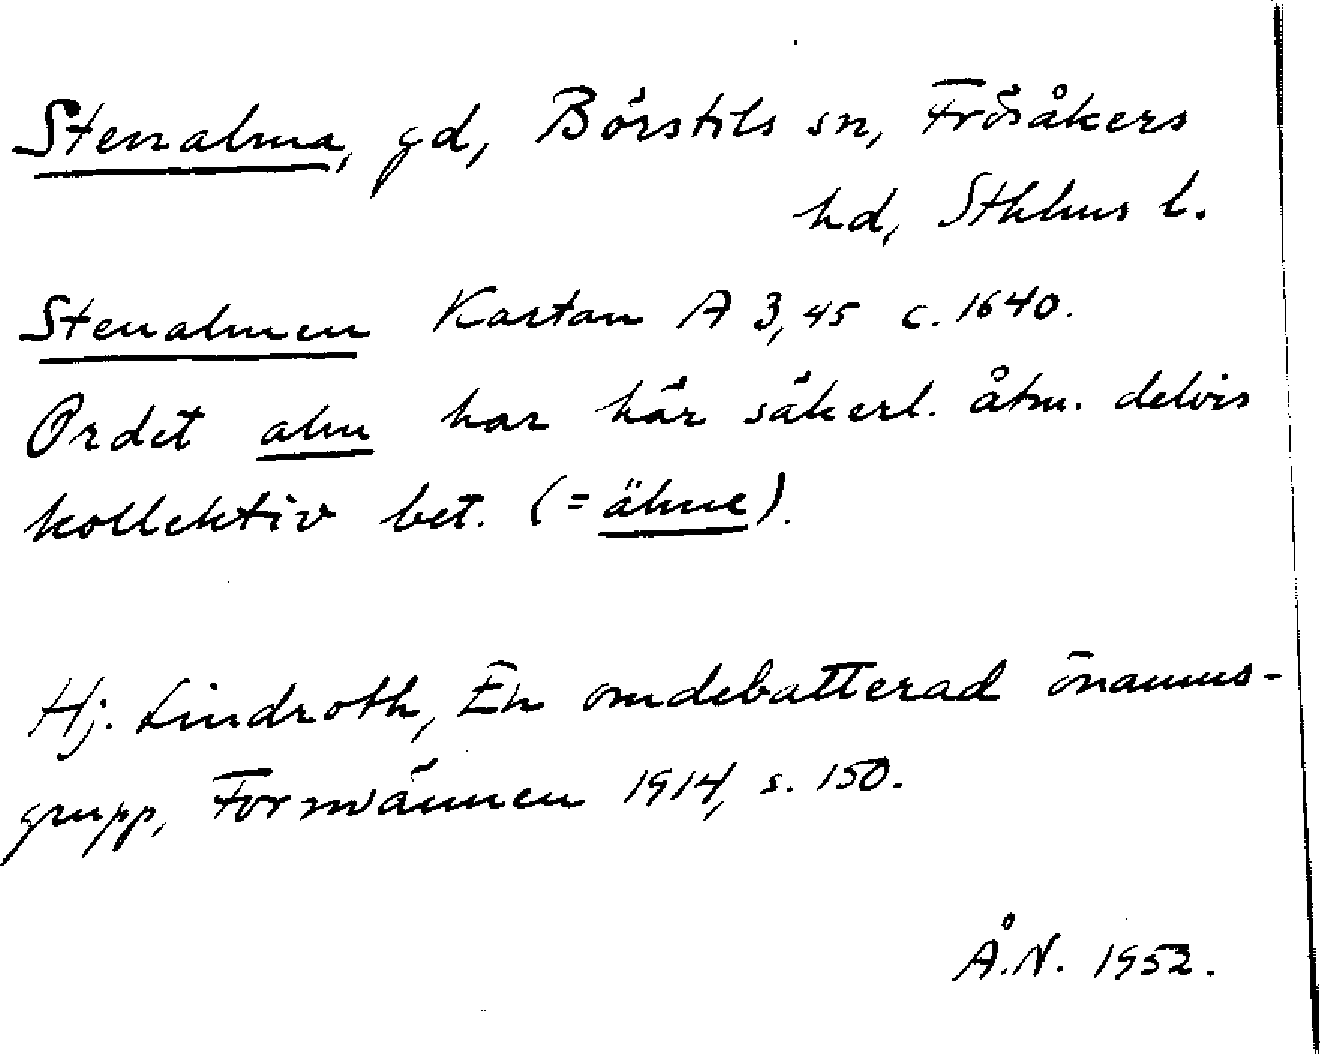 Stenalma, gd, Börstils sn, Frösåkers
hd, Sthlms l.
Stenalmen Kartan A 3,45 c. 1640.
Ordet alm har här säkerl. åtm. delvis
kollektiv bet. (= älme).
Hj. Lindroth, En omdebatterad önamns-
grupp, Fornvännen 1914, s. 150.
Å.N. 1952.